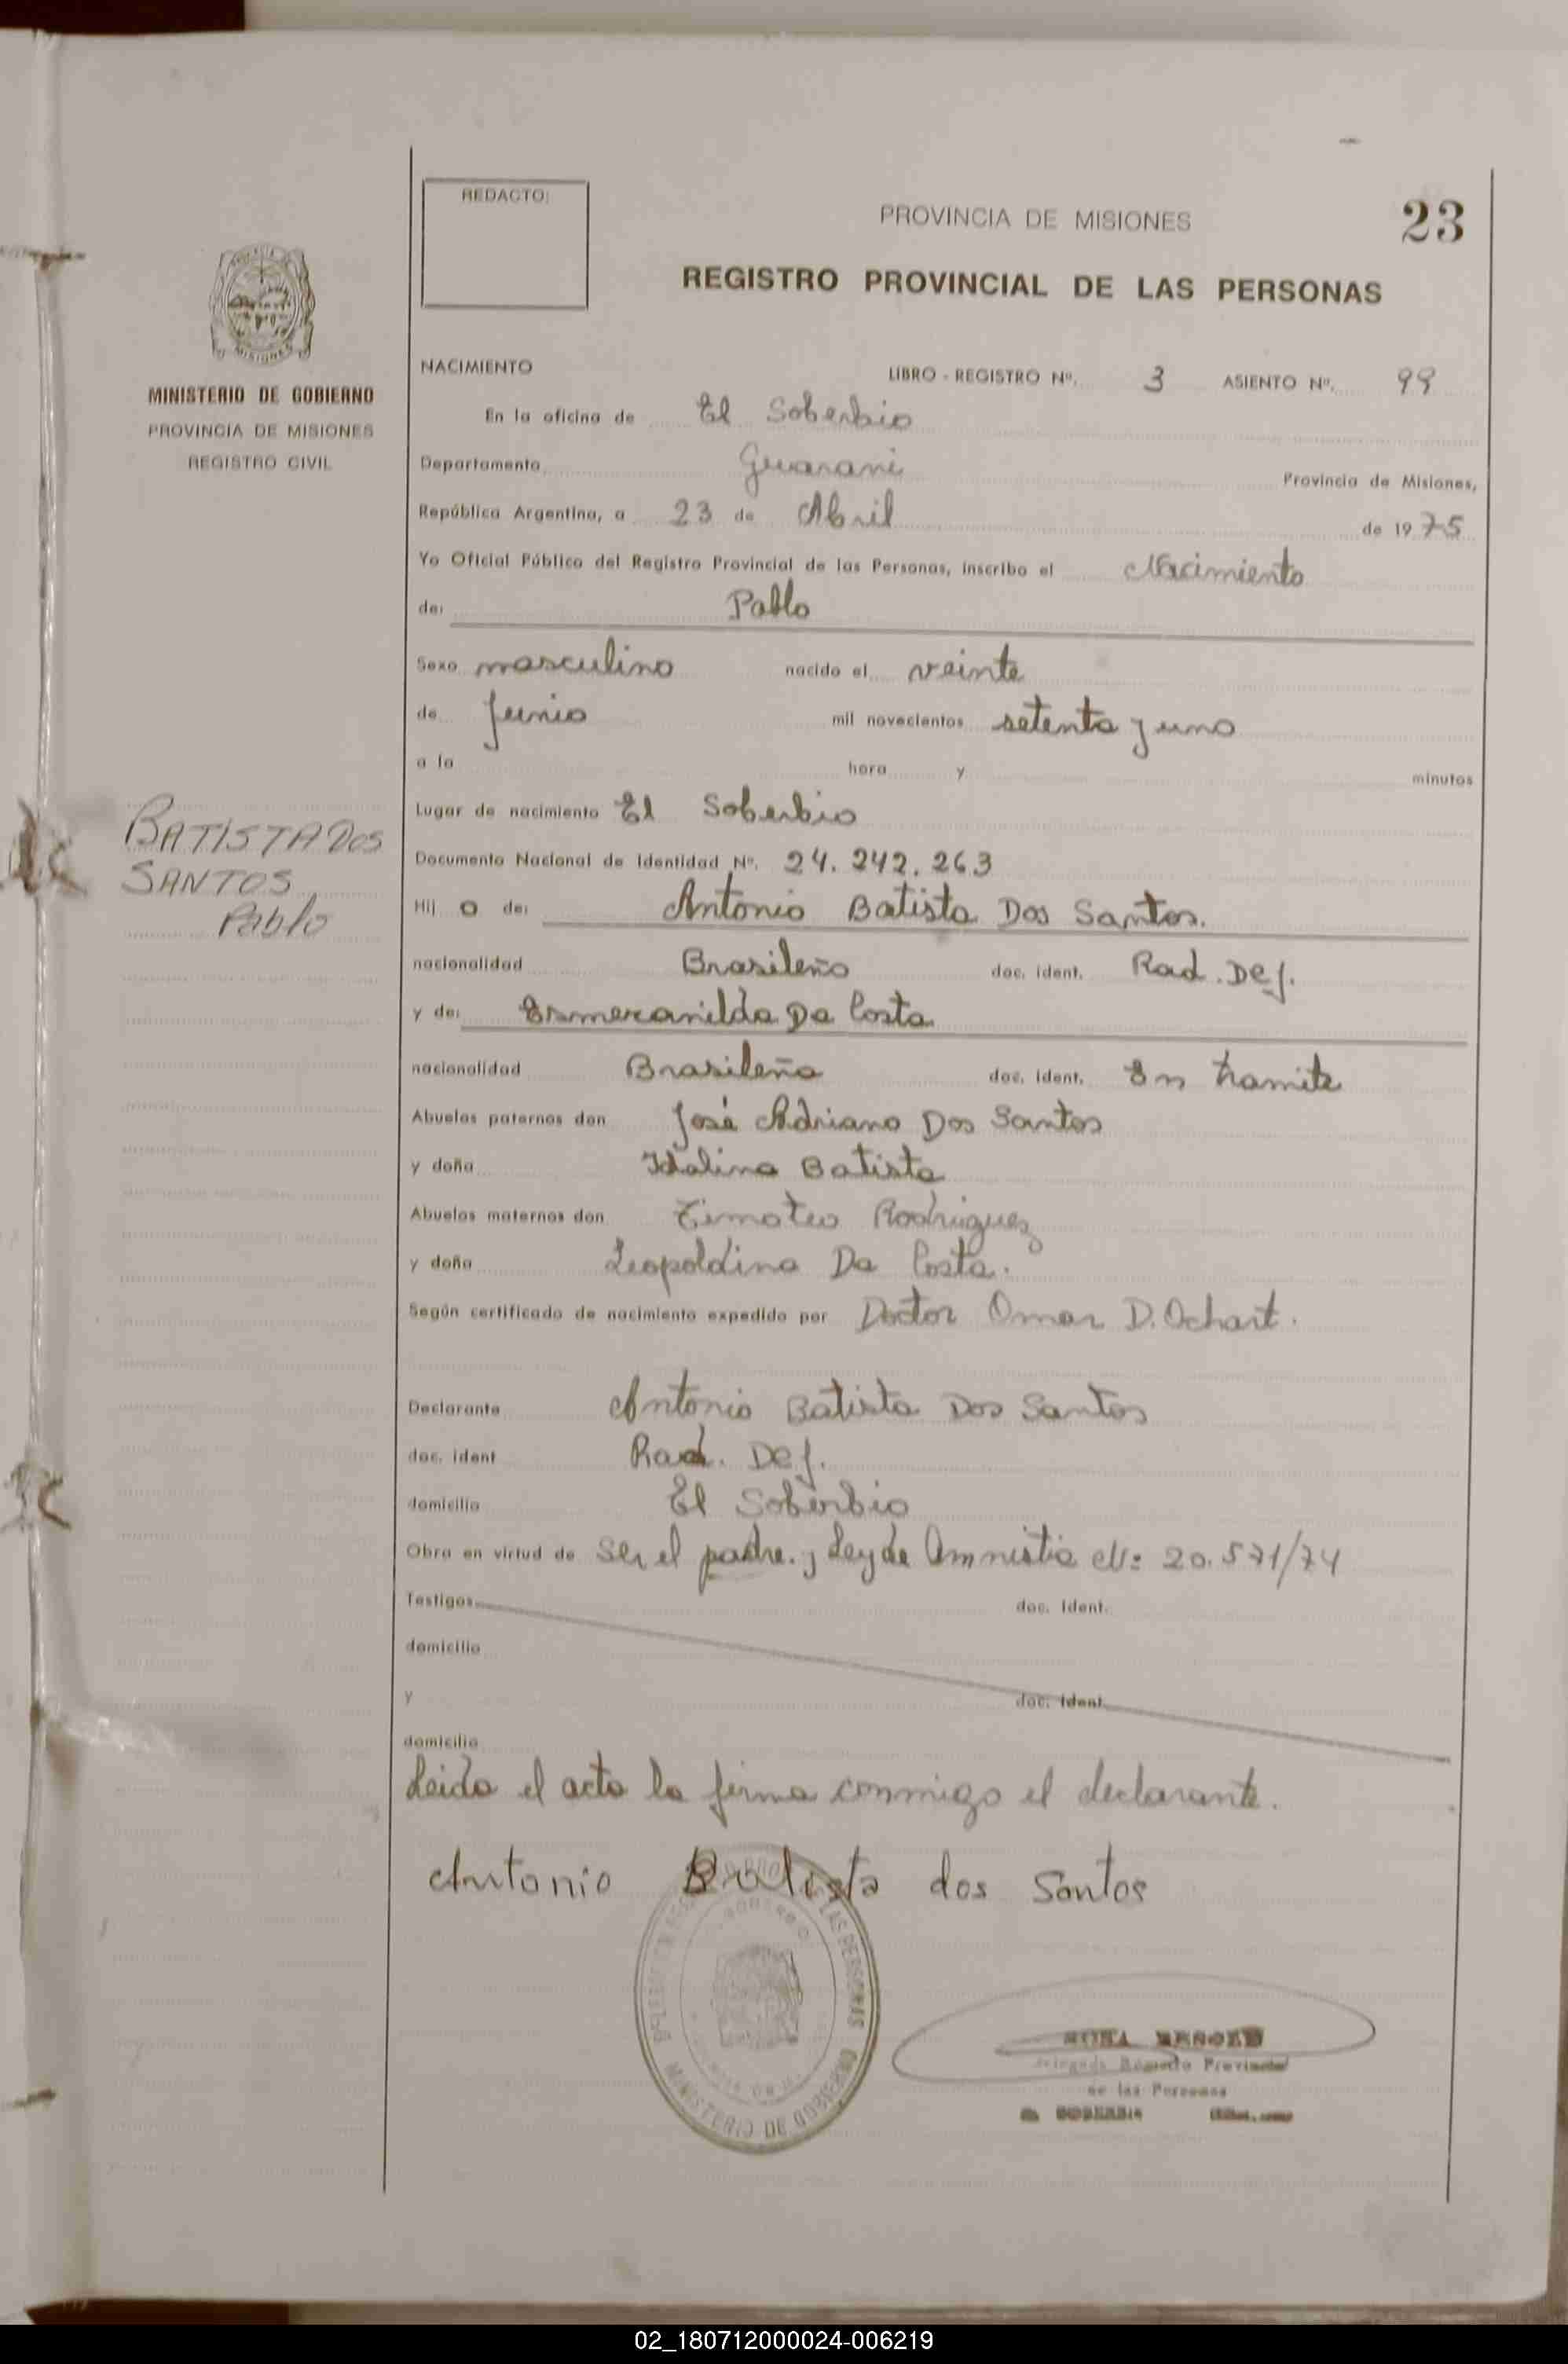 REDACTO:
PROVINCIA DE MISIONES
23
REGISTRO PROVINCIAL DE LAS PERSONAS
MISIONES
MINISTERIO DE GOBIERNO
PROVINCIA DE MISIONES
REGISTRO CIVIL
NACIMIENTO LIBRO - REGISTRO Nº. 3 ASIENTO Nº. 99
En la oficina de El Soberbio
Departamento Guarani Provincia de Misiones,
República Argentina, a 23 de Abril de 1975
Yo Oficial Público del Registro Provincial de las Personas, inscribo el Nacimiento
de: Pablo
Sexo masculino nacido el veinte
de Junio mil novecientos setenta y uno
a la hora y minutos
Lugar de nacimiento El Soberbio
Documento Nacional de Identidad Nº. 24.242.263
BATISTA DOS
SANTOS
Pablo
Hij o de: Antonio Batista Dos Santos.
nacionalidad Brasileño doc. ident. Rad. Def.
y de: Esmeranilda Da Costa
nacionalidad Brasileña doc. ident. En tramite
Abuelos paternos don José Adriano Dos Santos
y doña Idalina Batista
Abuelos maternos don Timoteo Rodriguez
y doña Leopoldina Da Costa.
Según certificado de nacimiento expedido por Doctor Omar D. Ochart.
Declarante Antonio Batista Dos Santos
doc. ident Rad. Def.
domicilio El Soberbio
Obra en virtud de ser el padre. y Ley de Amnistia Nº 20.571/74
Testigos doc. ident.
domicilio
y doc. ident.
domicilio
Leida el acta la firma conmigo el declarante.
Antonio Batista dos Santos
LAS PERSONAS
MINISTERIO DE GOBIERNO
Registro Provincial
de las Personas
02_180712000024-006219